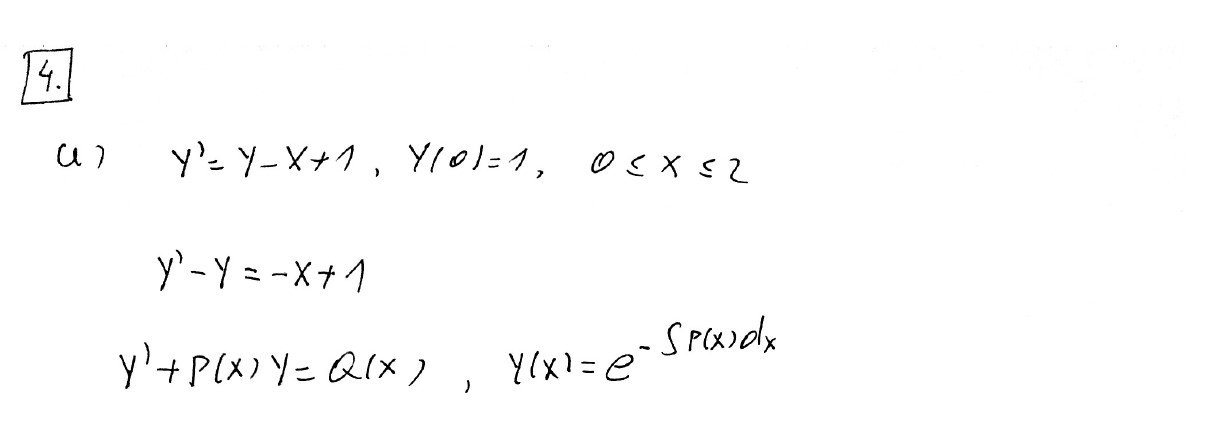 4.
a) y'=y-x+1, y(0)=1, 0≤x≤2
y'-y=-x+1
y'+P(x)y=Q(x), y(x)=e^{-∫P(x)dx}